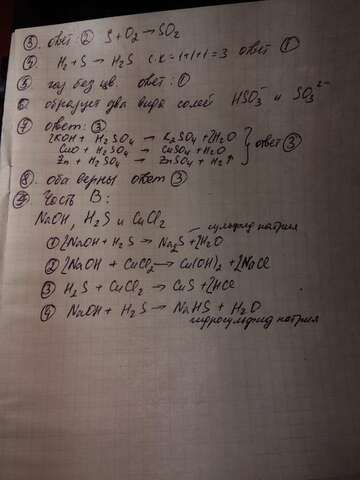 ③. ответ: ② S + O₂ → SO₂
④ H₂ + S → H₂S с.к = 1+1+1 = 3 ответ ①
⑤ газ без цв. ответ: ①
⑥ образует два вида солей HSO₃⁻ и SO₃²⁻
⑦ ответ: ③
2KOH + H₂SO₄ → K₂SO₄ + 2H₂O
CuO + H₂SO₄ → CuSO₄ + H₂O } ответ ③
Zn + H₂SO₄ → ZnSO₄ + H₂↑
⑧. оба верны ответ ③
Часть B:
NaOH, H₂S и CuCl₂
сульфид натрия
① 2NaOH + H₂S → Na₂S + 2H₂O
② 2NaOH + CuCl₂ → Cu(OH)₂ + 2NaCl
③ H₂S + CuCl₂ → CuS + 2HCl
④ NaOH + H₂S → NaHS + H₂O
гидросульфид натрия